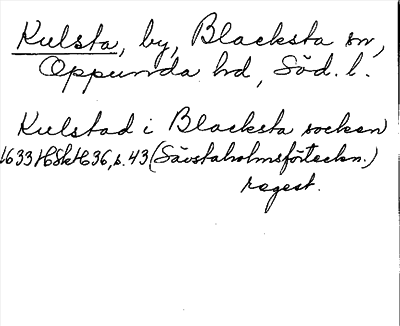 Kulsta, by, Blacksta sn,
Oppunda hd, Söd. l.
Kulstad i Blacksta socken
1633 HSkH 36, s. 43 (Säfstaholmsförteckn.)
regest.